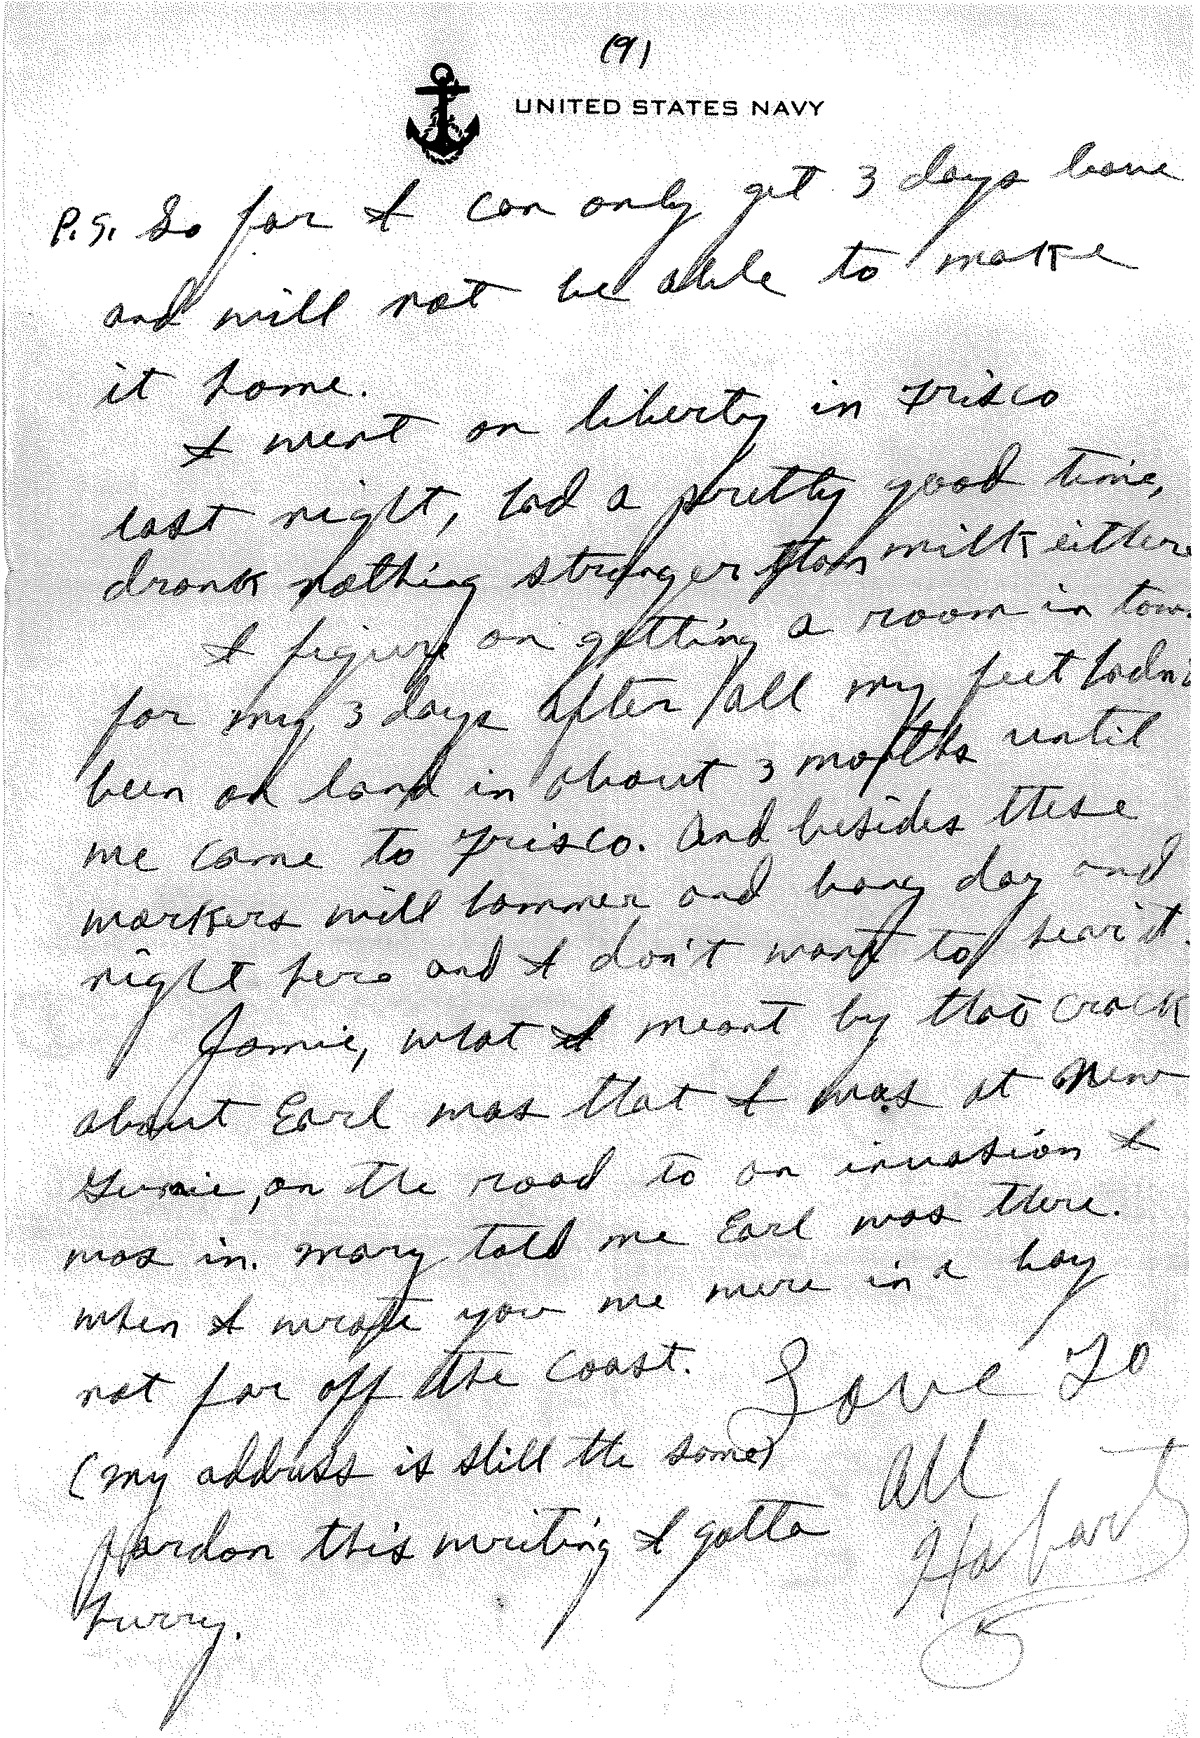 (9)
UNITED STATES NAVY
P.S. So far I can only get 3 days leave
and will not be able to make
it home.
I went on liberty in Frisco
last night, had a pretty good time,
drank nothing stronger than milk either
I figure on getting a room in town
for my 3 days after all my feet hadn't
been on land in about 3 months until
we came to Frisco. And besides these
workers will hammer and bang day and
night here and I don't want to hear it.
Jamie, what I meant by that crack
about Earl was that I was at New
Guinie, on the road to an invasion I
was in. Mary told me Earl was there.
when I wrote you we were in a bay
not far off the coast. Love To
(my address is still the same) All
pardon this writing I gotta Hobart
hurry.